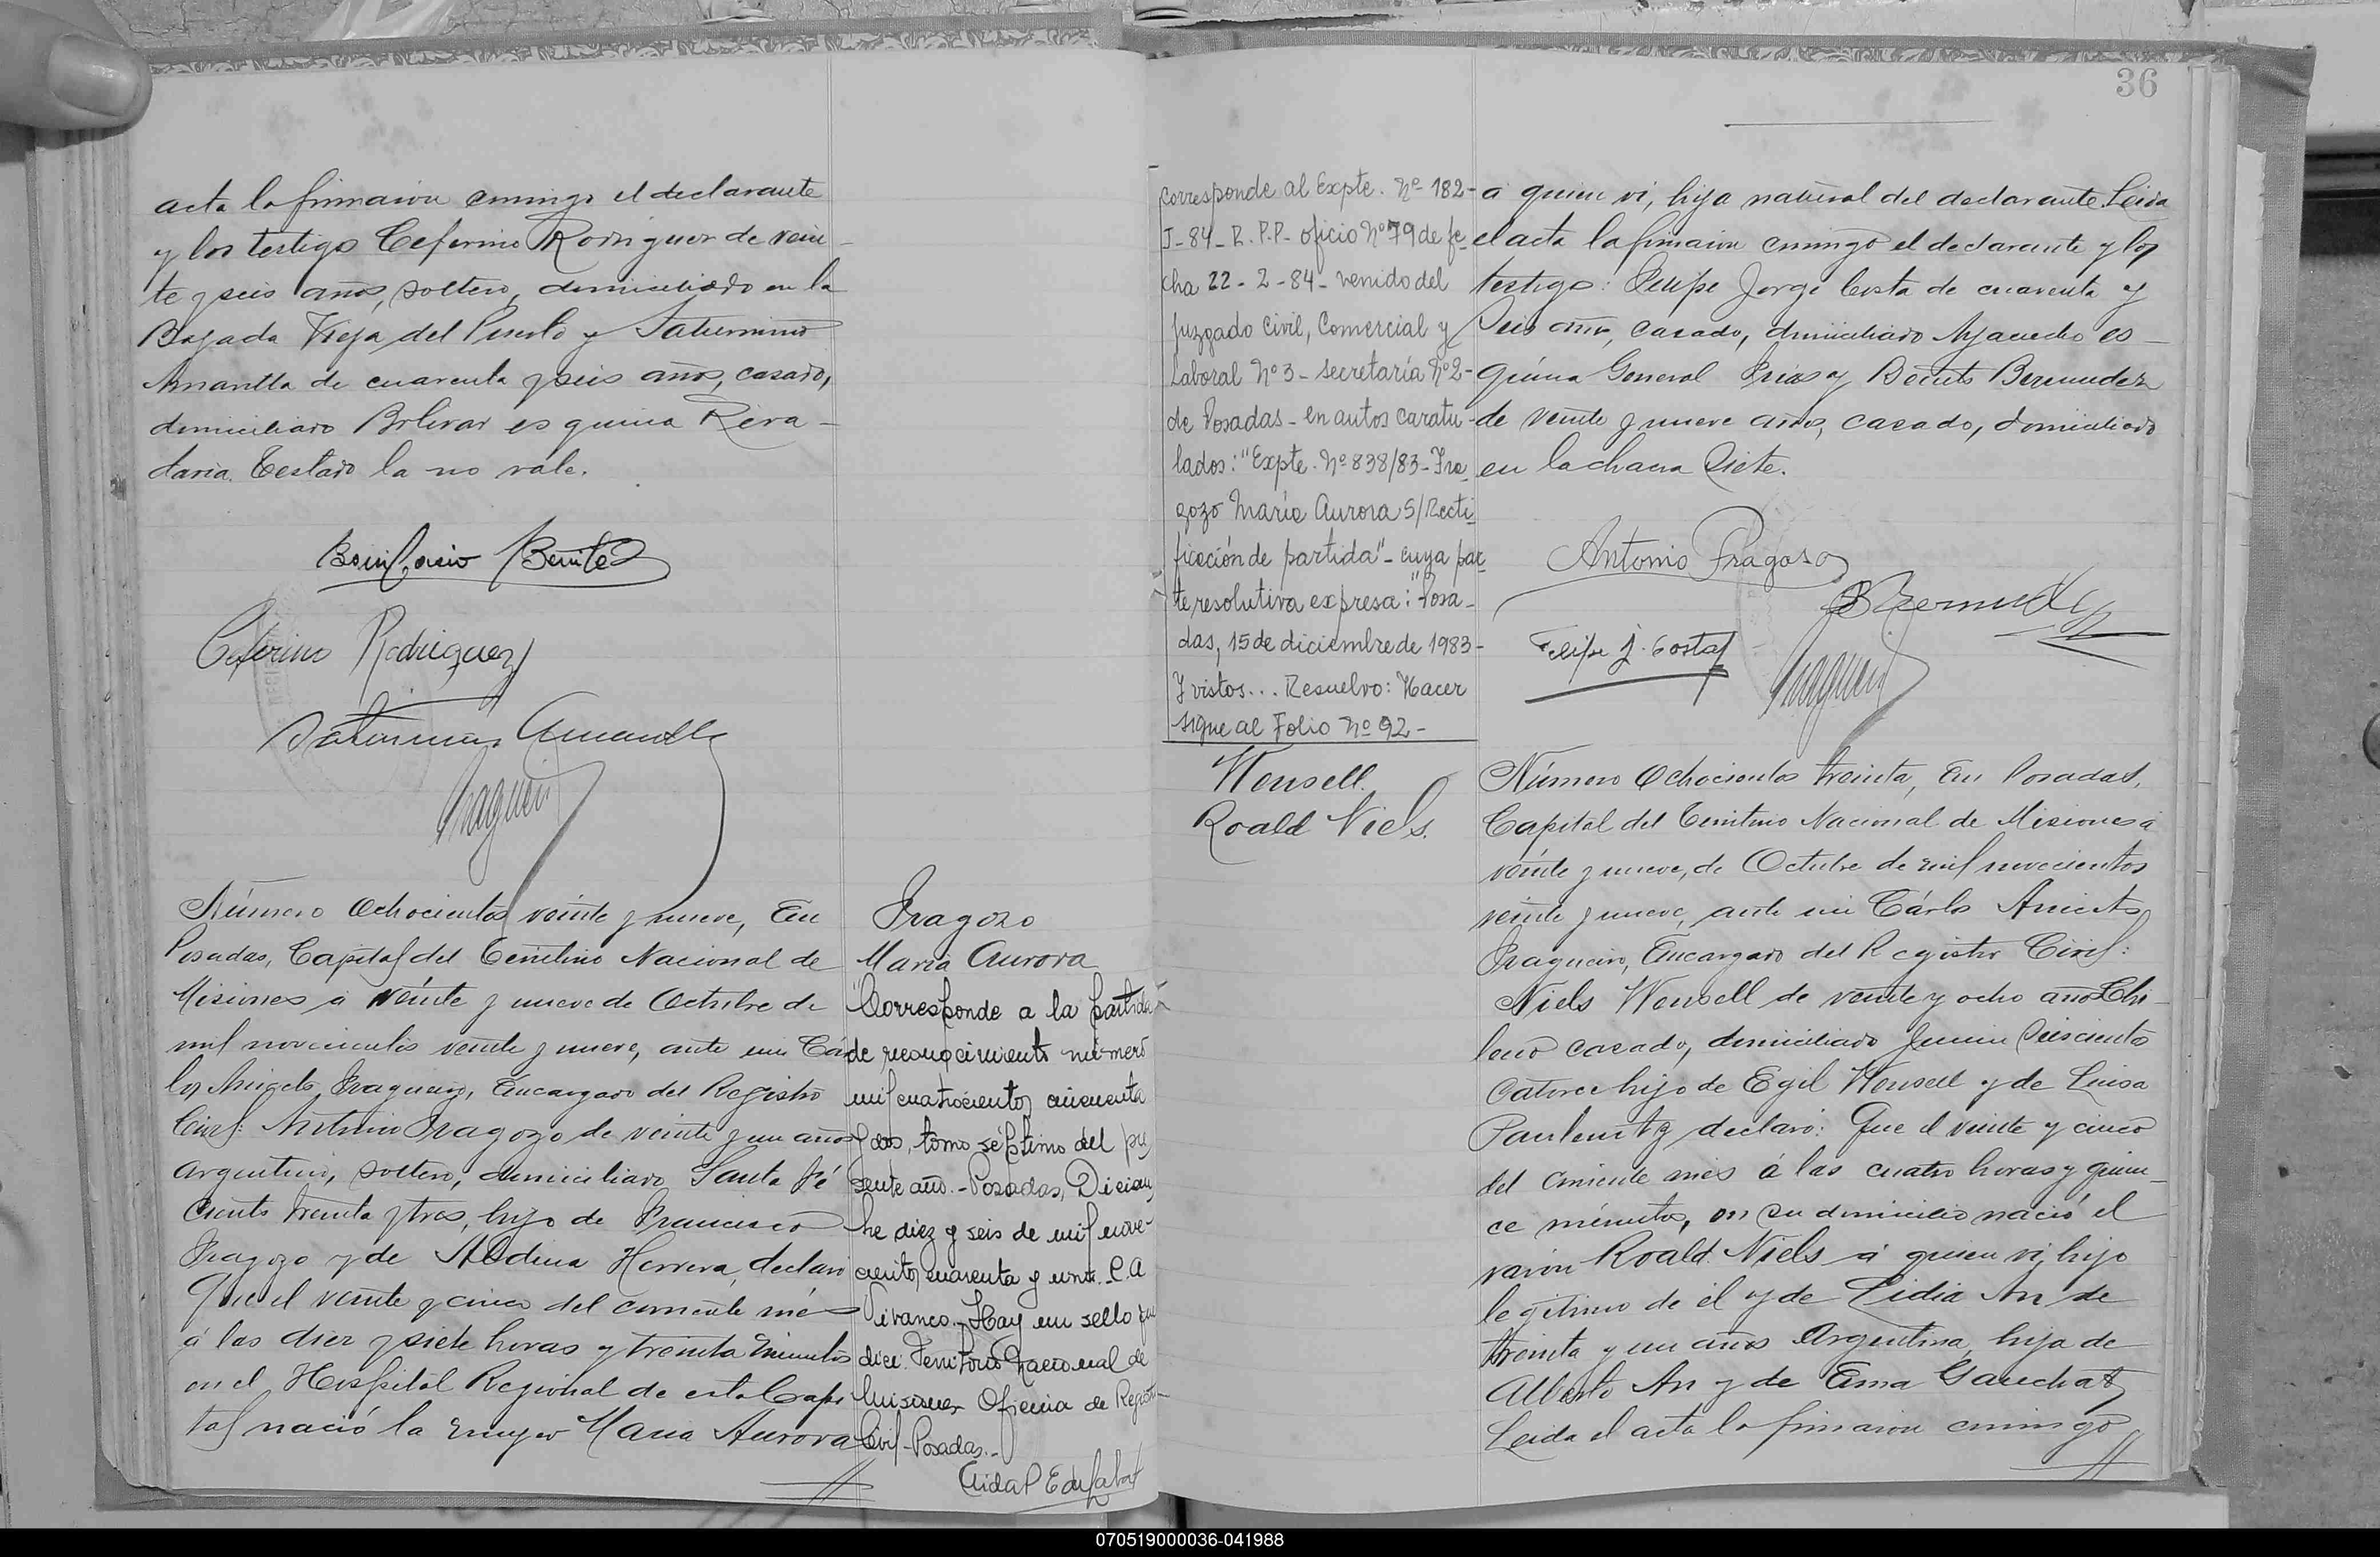 acta la firmaron conmigo el declarante
y los testigos Ceferino Rodriguez de vein
te y seis años, soltero, domiciliado en la
Bajada Vieja del Puerto y Saturnino
Amantta de cuarenta y seis años, casado,
domiciliado Bolivar es quina Riva-
davia. Testado la no vale.
Bonifacio Benitez
Ceferino Rodriguez
Saturnino
Número Ochocientos veinte y nueve, En
Posadas, Capital del Territorio Nacional de
Misiones á veinte y nueve de Octubre de
mil novecientos veinte y nueve, ante mi Cár
los Aniceto Fragueiro, Encargado del Registro
Civil: Antonio Fragozo de veinte y un años
argentino, soltero, domiciliado Santa Fé
Ciento treinta y tres, hijo de Francisco
Fragozo y de Herrera, declaró
Que el veinte y cinco del corriente més
á las diez y siete horas y treinta minutos
en el Hospital Regional de esta Capi
tal nació la mujer Maria Aurora
Fragozo
Maria Aurora
"Corresponde a la partida
de reconocimiento número
mil cuatrocientos cincuenta
y dos, tomo séptimo del pre
sente año.- Posadas, Diciem
bre diez y seis de mil nove-
cientos cuarenta y uno. C.A
Vivanco.- Hay un sello que
dice: Territorio Nacional de
Misiones Oficina de Registro
Civil-Posadas.-
36
corresponde al Expte. Nº 182-
J-84- R.P.P- oficio Nº 79 de fe-
cha 22-2-84- venido del
Juzgado Civil, Comercial y
Laboral Nº 3- secretaría Nº 2-
de Posadas- en autos caratu-
lados: "Expte. Nº 838/83- Fra
gozo María Aurora S/Recti
ficación de partida"- cuya par
te resolutiva expresa: "Posa-
das, 15 de diciembre de 1983-
Y vistos... Resuelvo: Hacer
sigue al Folio Nº 92-
á quien vi, hija natural del declarante. Leida
el acta la firmaron conmigo el declarante y los
testigos: Felipe Jorge Costa de cuarenta y
seis años, casado, domiciliado Ayacucho es-
quina General Frias y Benito Bermudez
de veinte y nueve años, casado, domiciliado
en la chacra Siete.
Antonio Fragoso
BBermudez
Felipe J. Costa
Wensell
Roald Niels.
Número Ochocientos treinta, En Posadas,
Capital del Territorio Nacional de Misiones á
veinte y nueve, de Octubre de mil novecientos
veinte y nueve, ante mi Cárlos Aniceto
Fragueiro, Encargado del Registro Civil:
Niels Wensell de veinte y ocho años Chi-
leno casado, domiciliado Junin Seiscientos
catorce hijo de Egil Wensell y de Luisa
Paulentz declaró: Que el veinte y cinco
del corriente més á las cuatro horas y quin-
ce minutos, en su domicilio nació el
varón Roald Niels á quien vi, hijo
legitimo de él y de Lidia An de
treinta y un años Argentina, hija de
Alberto An y de Ema Gauchat,
Leida el acta la firmaron conmigo
070519000036-041988